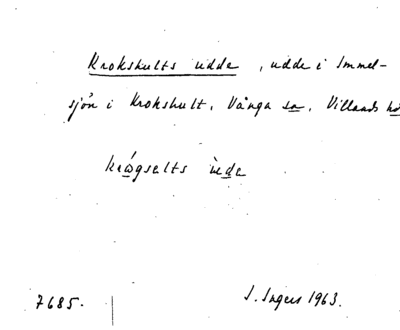 Krokshults udde, udde i Immel-
sjön i Krokshult, Vånga sn, Villands
krógselts ùde
7685. I. Ingers 1963.